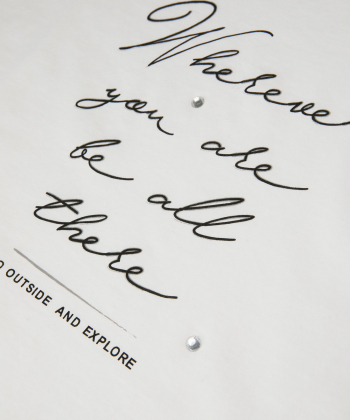 Whereve
you are
be all
there
O OUTSIDE AND EXPLORE